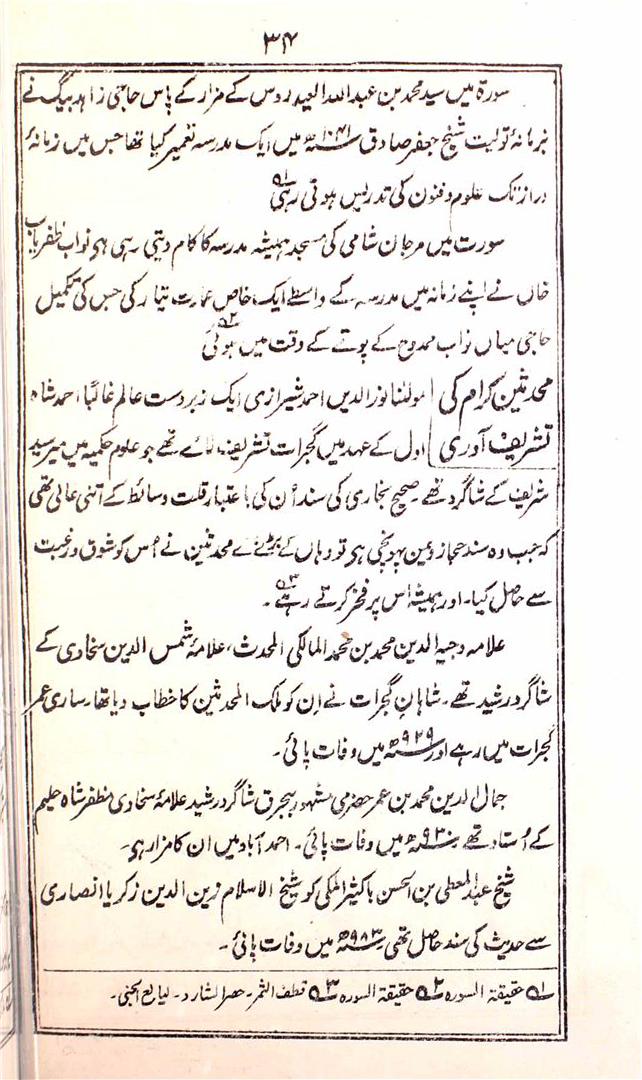 ۳۴
سورۃ میں سید محمد بن عبد اللہ العیدروس کے مزار کے پاس حاجی زاہد بیگ نے
بزمانۂ تولیت شیخ جعفر صادق ۱۰۴۱ھ میں ایک مدرسہ تعمیر کیا تھا جس میں زمانۂ
دراز تک علوم و فنون کی تدریس ہوتی رہی ۱ھ
سورت میں مرجان شامی کی مسجد ہمیشہ مدرسہ کا کام دیتی رہی ہی نواب ظفریاب
خاں نے اپنے زمانہ میں مدرسہ کے واسطے ایک خاص عمارت تیار کی جس کی تکمیل
حاجی میاں نواب ممدوح کے پوتے کے وقت میں ہوئی ۲ھ
محدثین کرام کی مولٰنا نور الدین احمد شیرازی ایک زبردست عالم غالبًا احمد شاہ
تشریف آوری اول کے عہد میں گجرات تشریف لائے تھے جو علوم حکمیہ میں میر سید
شریف کے شاگرد تھے۔ صحیح بخاری کی سند اُن کی باعتبار قلت وسائط کے اتنی عالی تھی
کہ جب وہ سند حجاز و یمن پہونچی ہی تو وہاں کے بڑے بڑے محدثین نے اُس کو شوق و رغبت
سے حاصل کیا۔ اور ہمیشہ اس پر فخر کرتے رہے ۳ھ۔
علامہ وجیہ الدین محمد بن محمد المالکی المحدث، علامۂ شمس الدین سخاوی کے
شاگرد رشید تھے۔ شاہانِ گجرات نے اِن کو ملک المحدثین کا خطاب دیا تھا۔ ساری عمر
گجرات میں رہے اور ۹۲۹ھ میں وفات پائی۔
جمال الدین محمد بن عمر حضرمی مشہور ببحرق شاگرد رشید علامۂ سخاوی مظفر شاہ حلیم
کے اُستاد تھے ۹۳۰ھ میں وفات پائی۔ احمد آباد میں ان کا مزار ہی۔
شیخ عبد المعطی بن الحسن باکثیر المکی کو شیخ الاسلام زین الدین زکریا انصاری
سے حدیث کی سند حاصل تھی ۹۸۳ھ میں وفات پائی۔
۱ھ حقیقۃ السورہ ۲ھ حقیقۃ السورہ ۳ھ قطف الثمر۔ حصر الشارد۔ الیانع الجنی۔